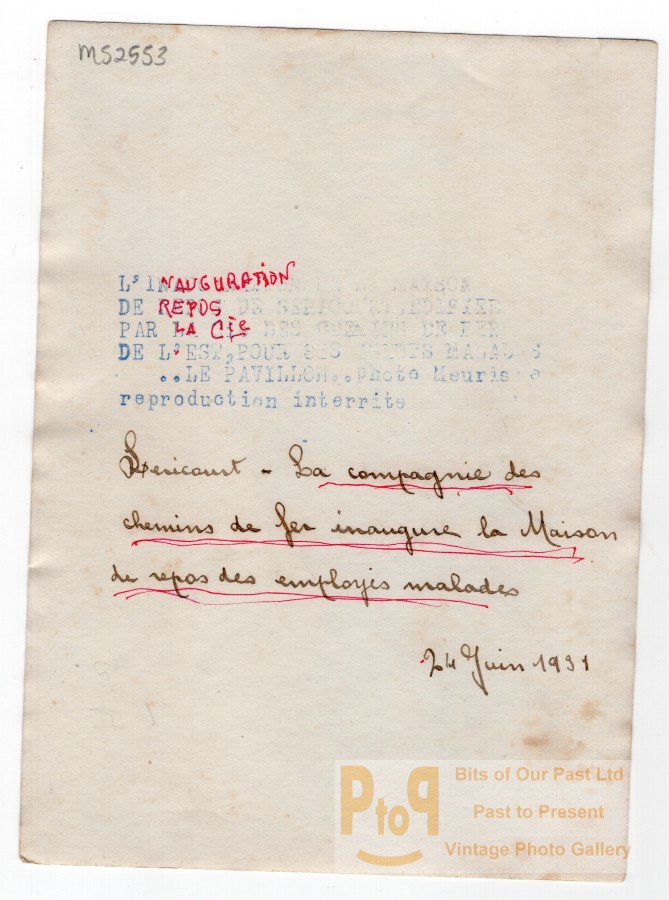 MS2553
L'INAUGURATION MAISON
DE REPOS DE EDIFIEE
PAR LA Cie DES CHEMINS DE FER
DE L'EST, POUR SES AGENTS MALADES
..LE PAVILLON..photo Meurisse
reproduction interrite
La compagnie des
chemins de fer inaugure la Maison
de repos des employés malades
24 Juin 1931
PtoP
Bits of Our Past Ltd
Past to Present
Vintage Photo Gallery